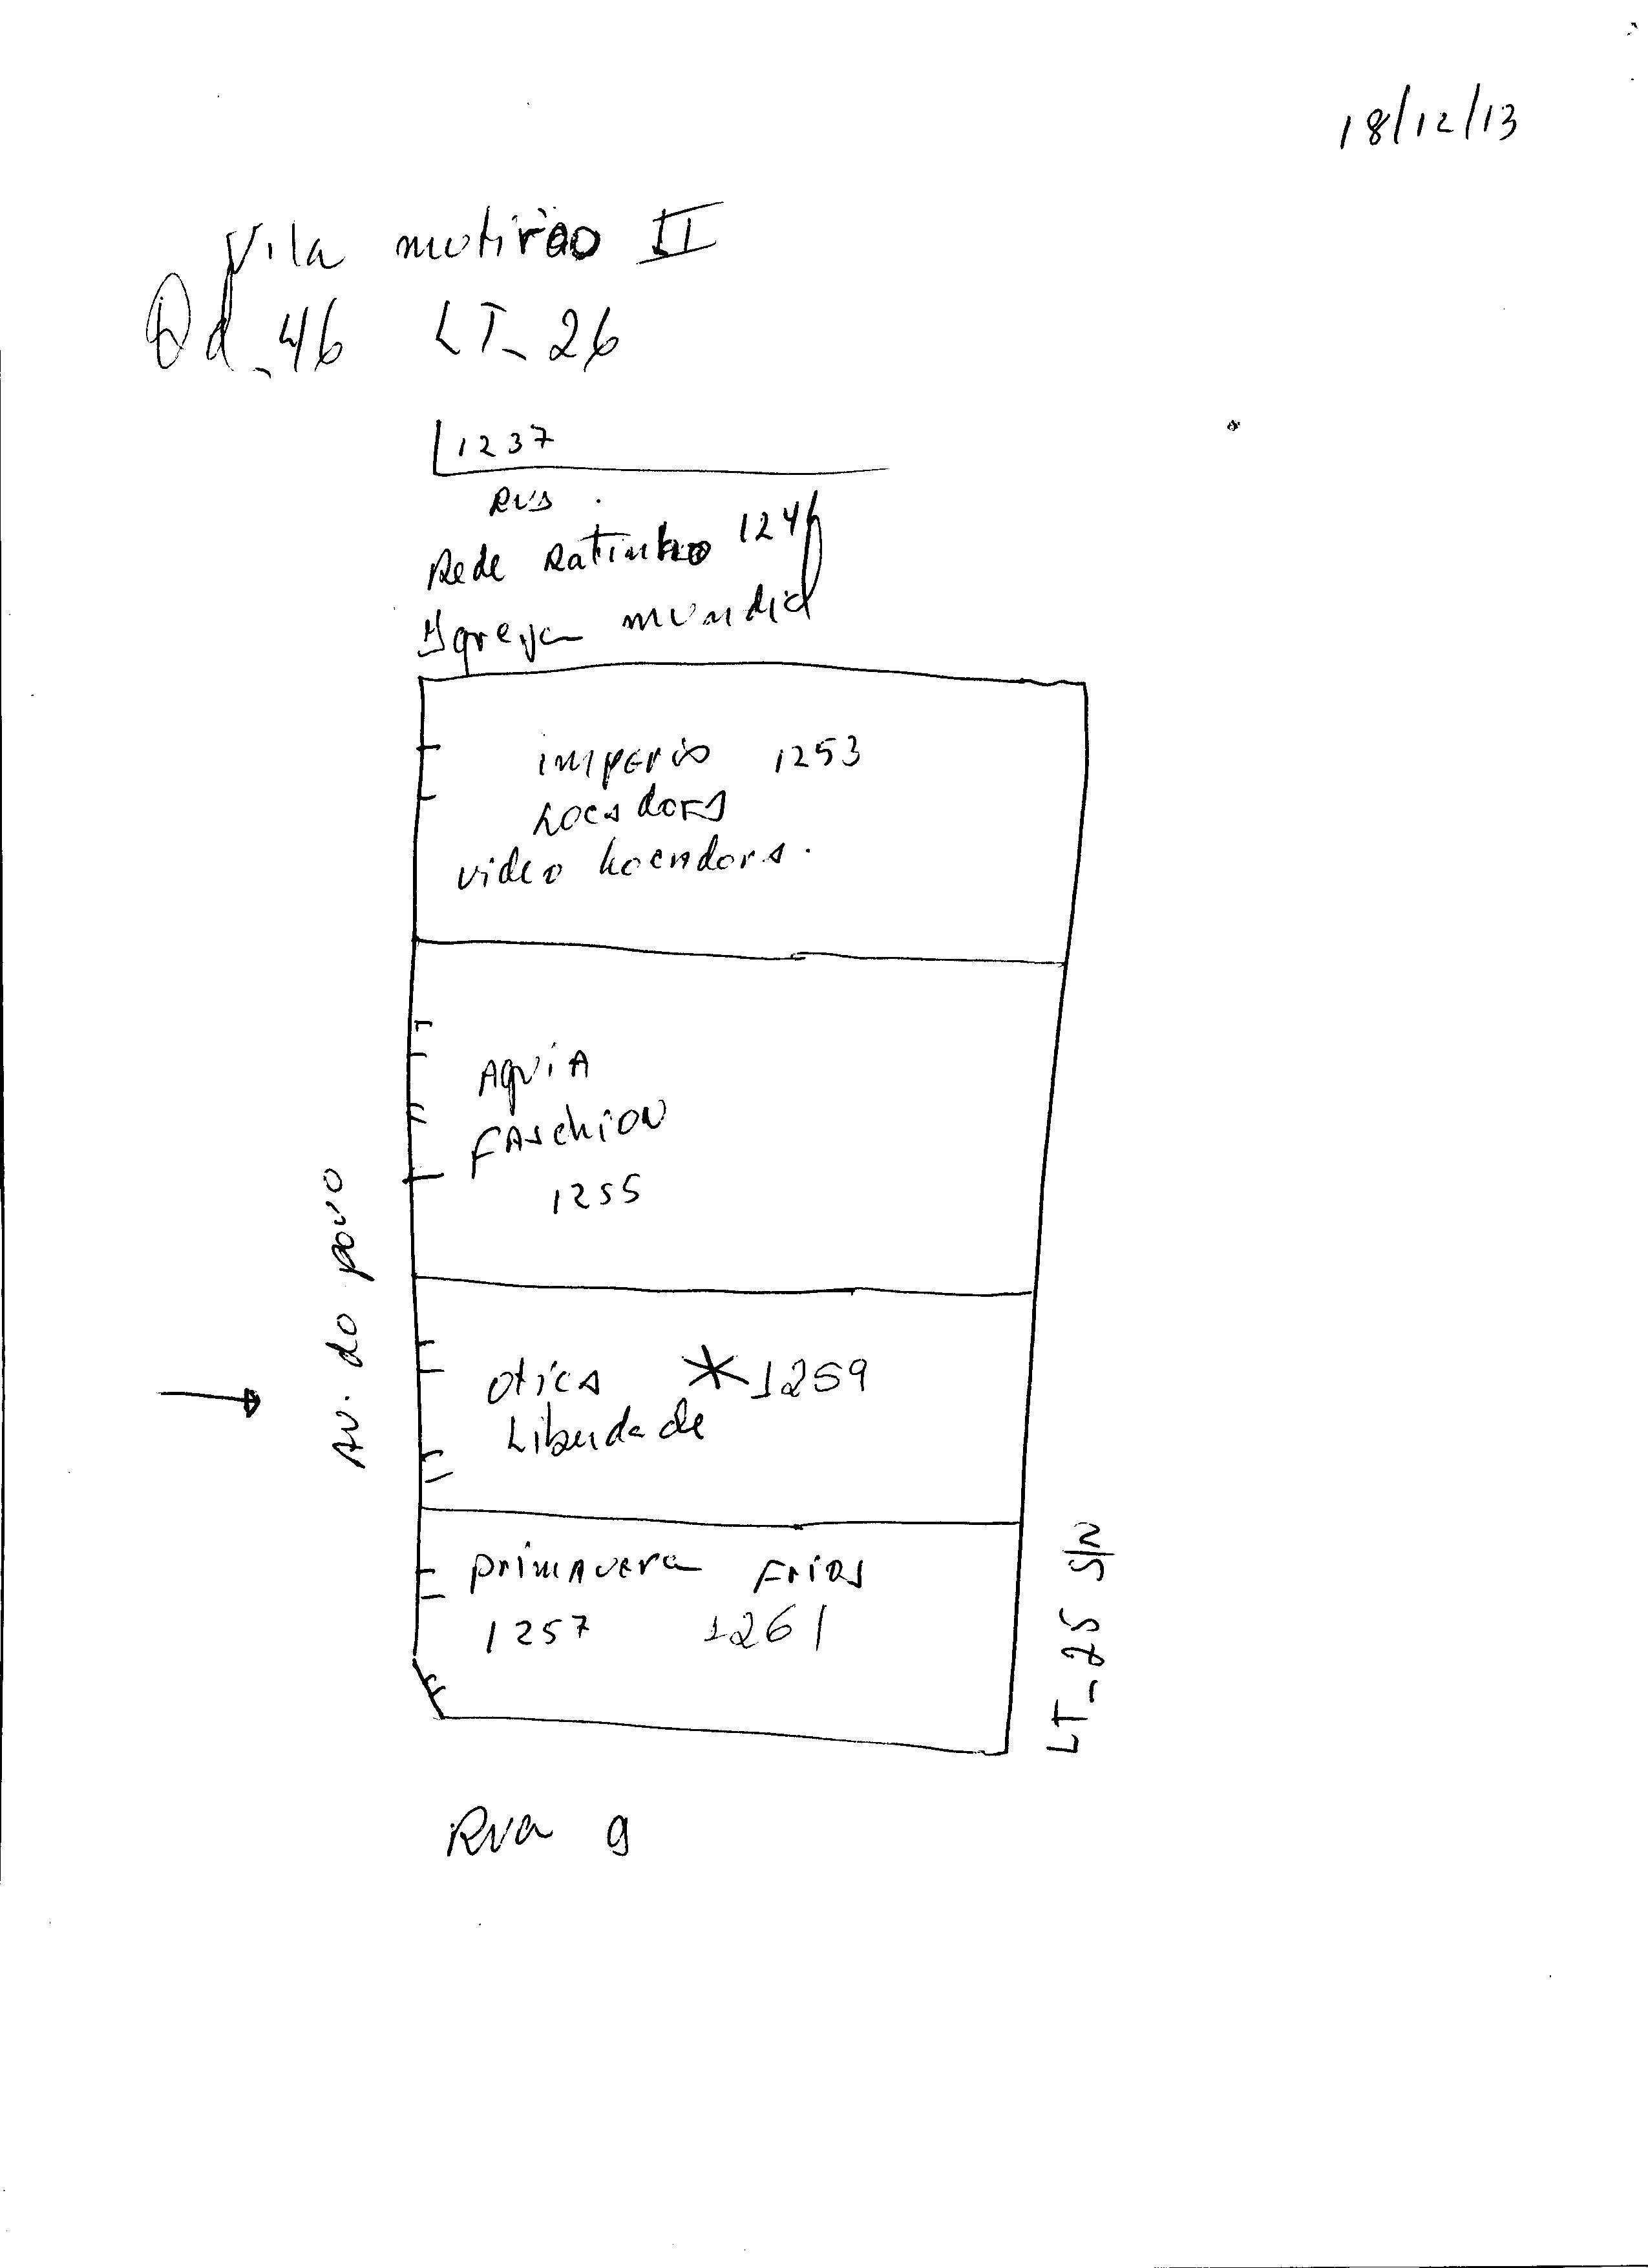 18/12/13
Vila mutirão II
Qd_46 LT_26
1237
RUA
Rede Ratinho
Igreja mundial
imperio 1253
Locadora
video Locadora.
AquiA
FAschion
1255
Av. do povo
otica * 1259
Liberdade
primavera Frios
1257 1261
LT_25 S/N
Rua 9